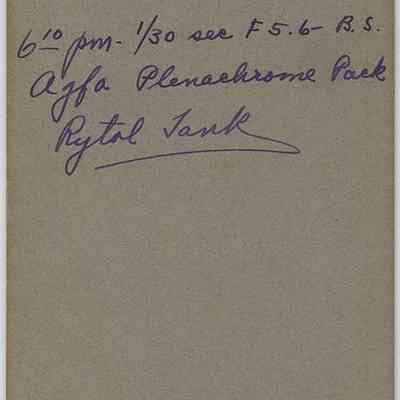 6 10 pm. 1/30 sec F 5.6 - B.S.
Agfa Plenachrome Pack
Rytol Tank